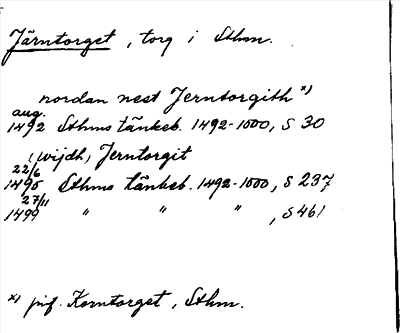 Järntorget, torg i Sthm.
nordan nest Jerntorgith x)
aug.
1492 Sthms tänkeb. 1492-1500, S 30
(wijdh) Jerntorgit
22/6
1495 Sthms tänkeb. 1492-1500, S 237
27/11
1499 " " " , S 461
x) jmf. Korntorget, Sthm.